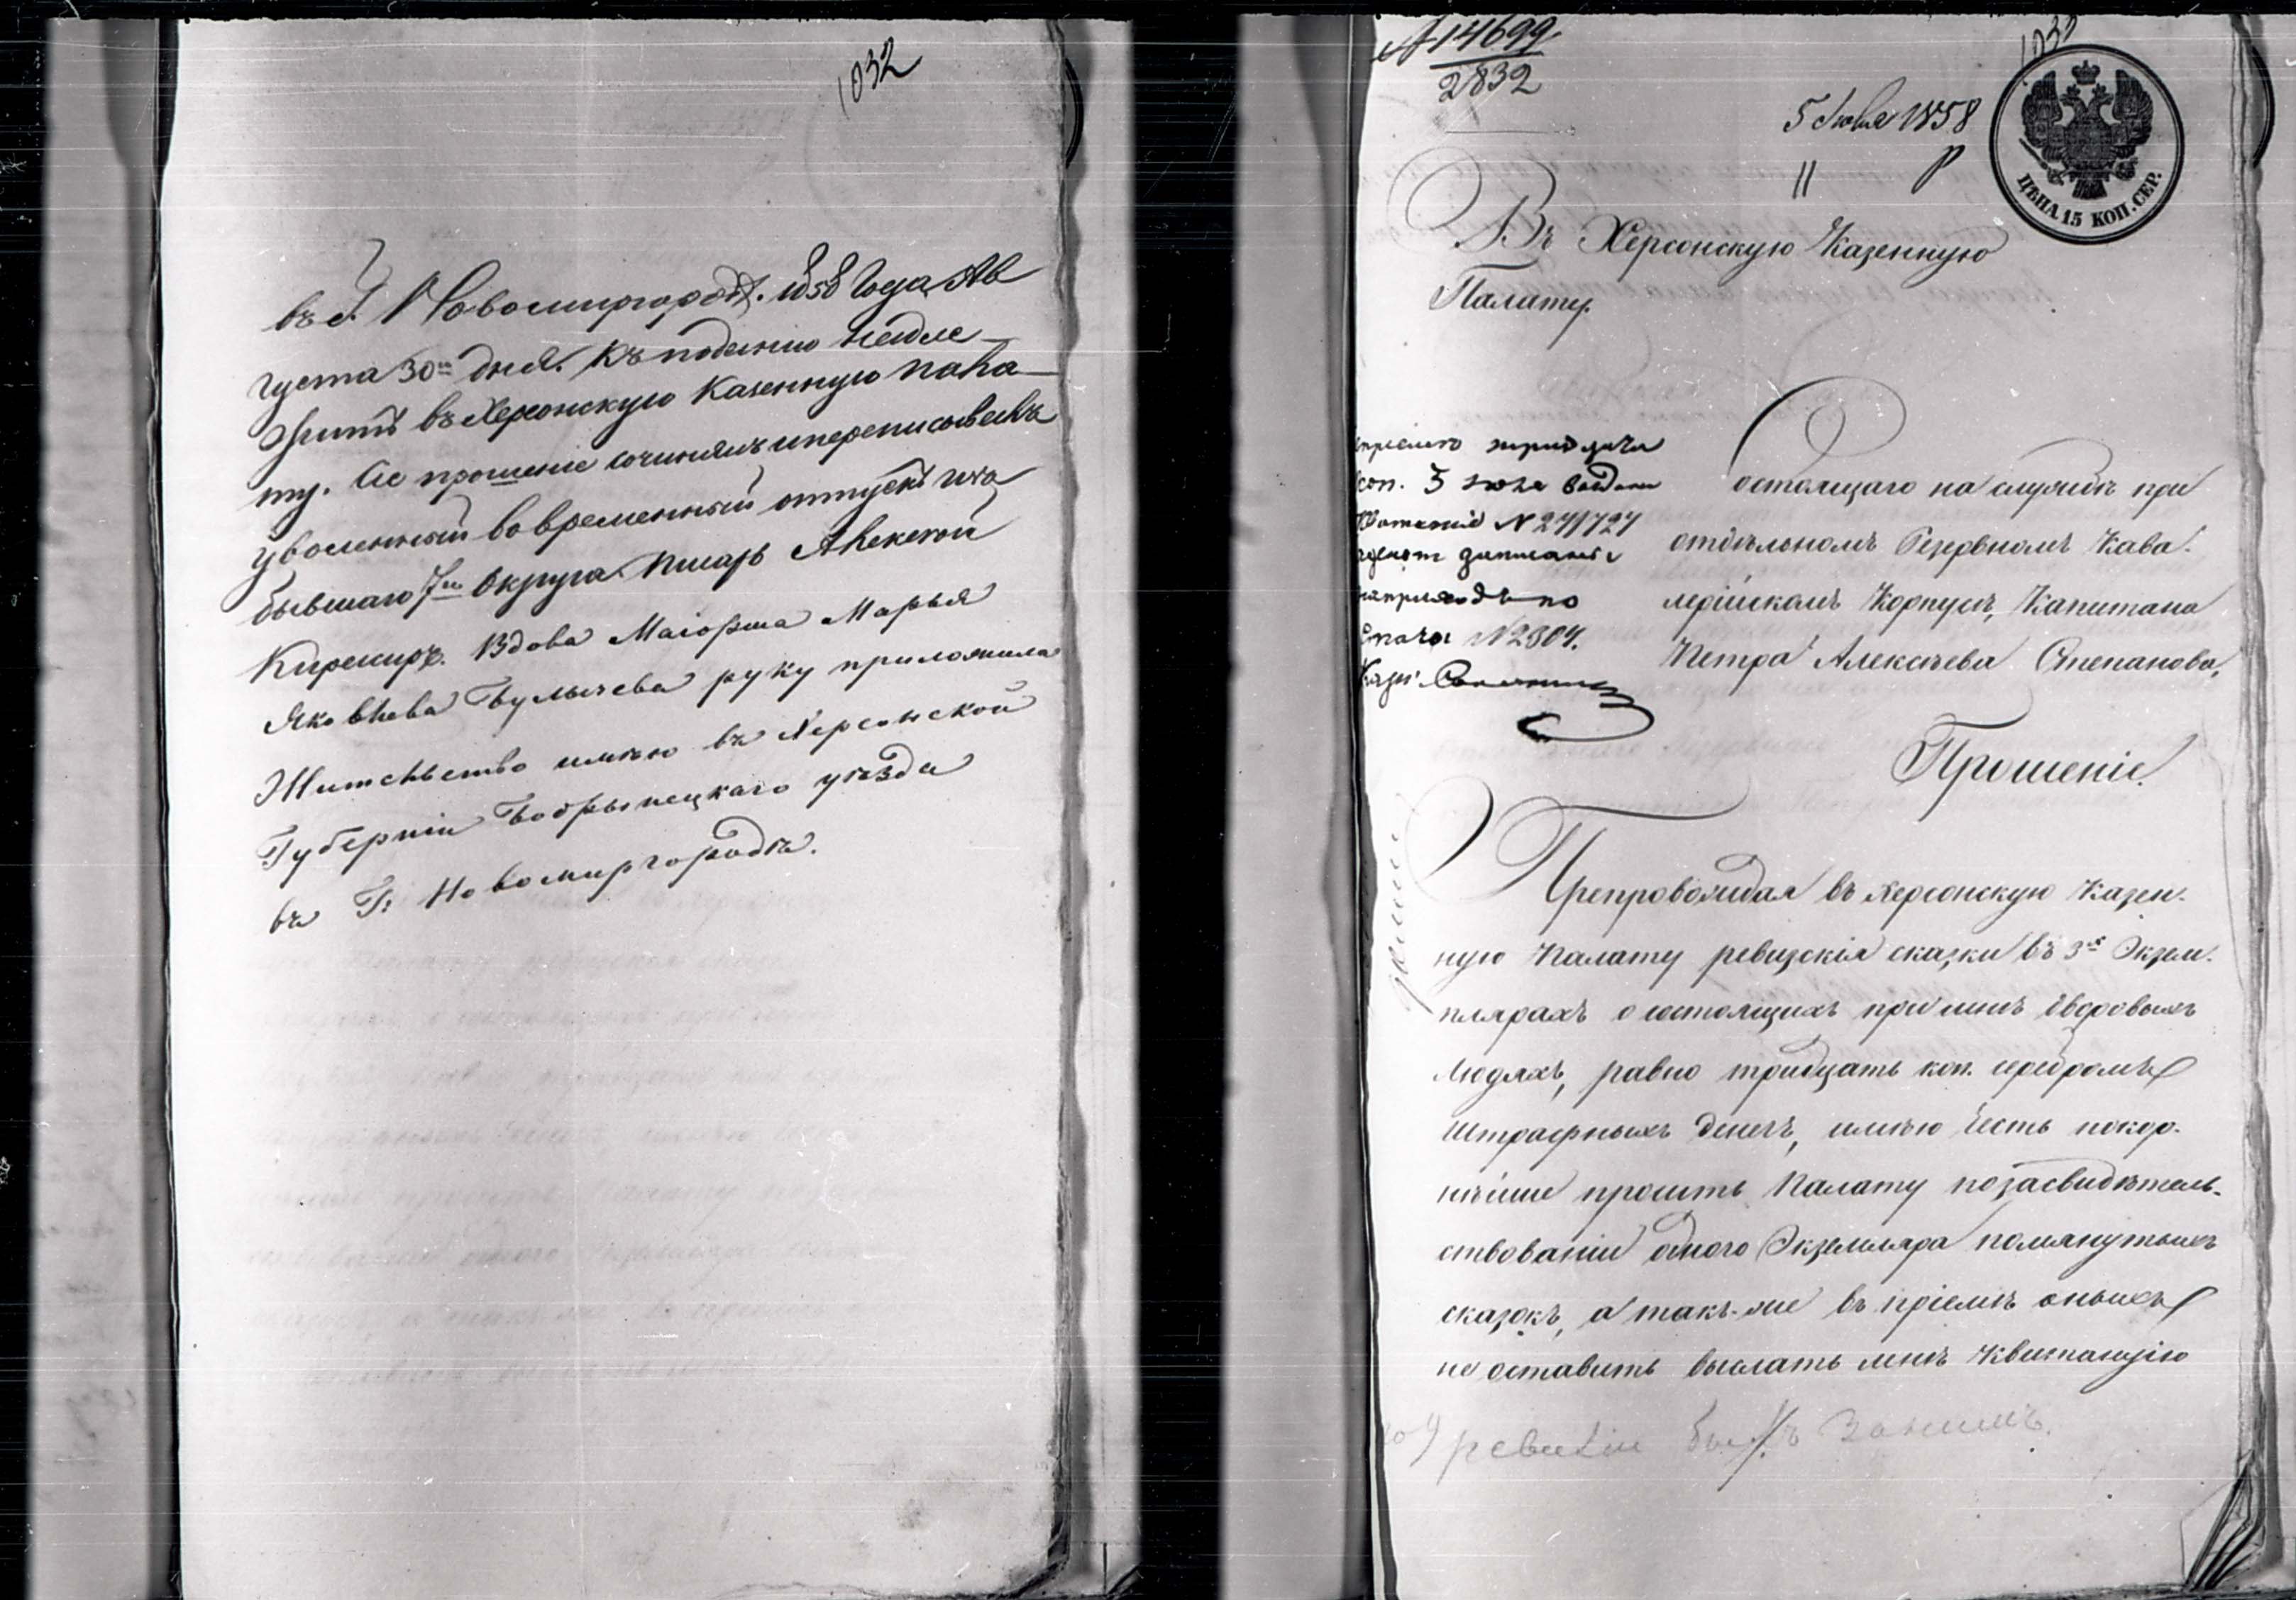 1032
въ г. Новомиргородѣ. 1858 Года Ав
густа 30го дня. Къ поданію надле
житъ въ Херсонскую Казенную пала
ту. Сіе прошеніе сочинялъ и переписовалъ
уволенный во временный отпускъ изъ
бывшаго 7го Округа писарь Алексѣй
Вдова Маіорша Марья
Яковлева Булычева руку приложила
Жительство имѣю въ Херсонской
Губерніи Бобрынецкаго уѣзда
въ Г. Новомиргородѣ.
№ 14699
2832
5 Іюля 1858
11 Р
ЦѢНА 15 КОП. СЕР.
Въ Херсонскую Казенную
Палату.
Состоящаго на службѣ при
отдѣльномъ Резервномъ Кава-
лерійскомъ Корпусѣ, Капитана
Петра Алексѣева Степанова,
тридцать
коп. 5 выдана
№ 271727
записаны
по
№ 2804.
Прошеніе.
Препровождая въ Херсонскую Казен-
ную Палату ревизскія сказки въ 3хъ Экзем-
плярахъ о состоящихъ при мнѣ дворовыхъ
людяхъ, равно тридцать коп. серебромъ
штрафныхъ денегъ, имѣю честь покор-
нѣйше просить Палату по засвидѣтель-
ствованіи одного Экземпляра помянутыхъ
сказокъ, а такъ-же въ пріемѣ оныхъ
не оставить выслать мнѣ Квитанцію
ревизіи